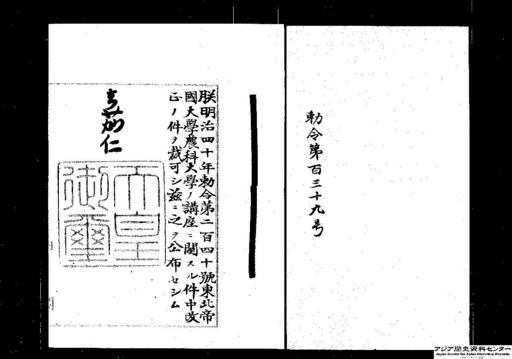 勅令第百三十九号
朕明治四十年勅令第二百四十號東北帝
國大學農科大學ノ講座ニ關スル件中改
正ノ件ヲ裁可シ茲ニ之ヲ公布セシム
嘉仁
天皇
御璽
アジア歴史資料センター
Japan Center for Asian Historical Records